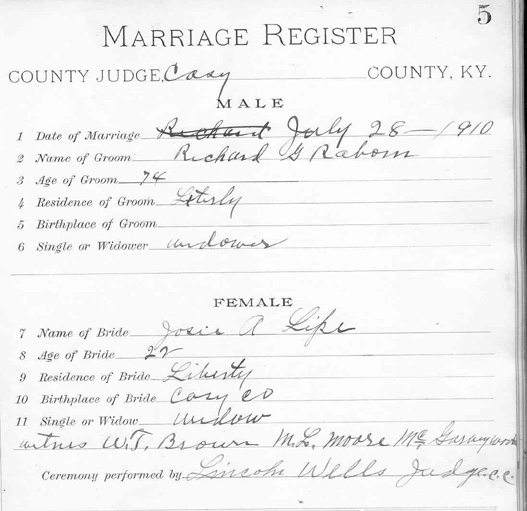 5
MARRIAGE REGISTER
COUNTY JUDGE, Casy COUNTY, KY.
MALE
1 Date of Marriage Richard July 28 - 1910
2 Name of Groom Richard G Raborn
3 Age of Groom 74
4 Residence of Groom
5 Birthplace of Groom
6 Single or Widower widower
FEMALE
7 Name of Bride Josie A Lipe
8 Age of Bride 22
9 Residence of Bride Liberty
10 Birthplace of Bride Casy co
11 Single or Widow widow
witnes W.T. Brown M.L. Moore
Ceremony performed by Lincoln Wells Judge c.c.